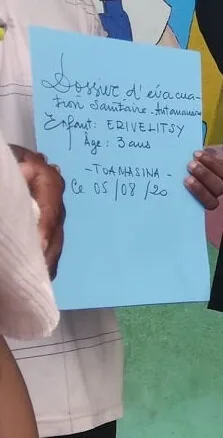 Dossier d'évacua-
tion Sanitaire - Antananarivo
Enfant : ERIVELITSY
Âge : 3 ans
- TOAMASINA -
Ce 05/08/20